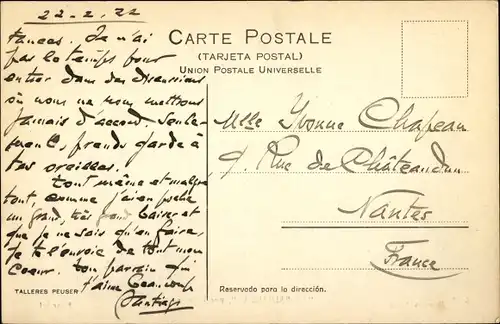 22-2, 22
tances. Je n'ai
pas le temps pour
entrer dans des discussions
où nous ne nous mettrons
jamais d'accord. Seule-
ment, prends garde à
tes oreilles.
Tout même et malgré
tout, comme j'ai en poche
un grand, très grand baiser et
que je ne sais qu'en faire,
je te l'envoie de tout mon
coeur. ton parrain qui
t'aime beaucoup
Santiago
TALLERES PEUSER
CARTE POSTALE
(TARJETA POSTAL)
UNION POSTALE UNIVERSELLE
Mlle Yvonne Chapeau
9. Rue de Châteaudun
Nantes
France
Reservado para la dirección.